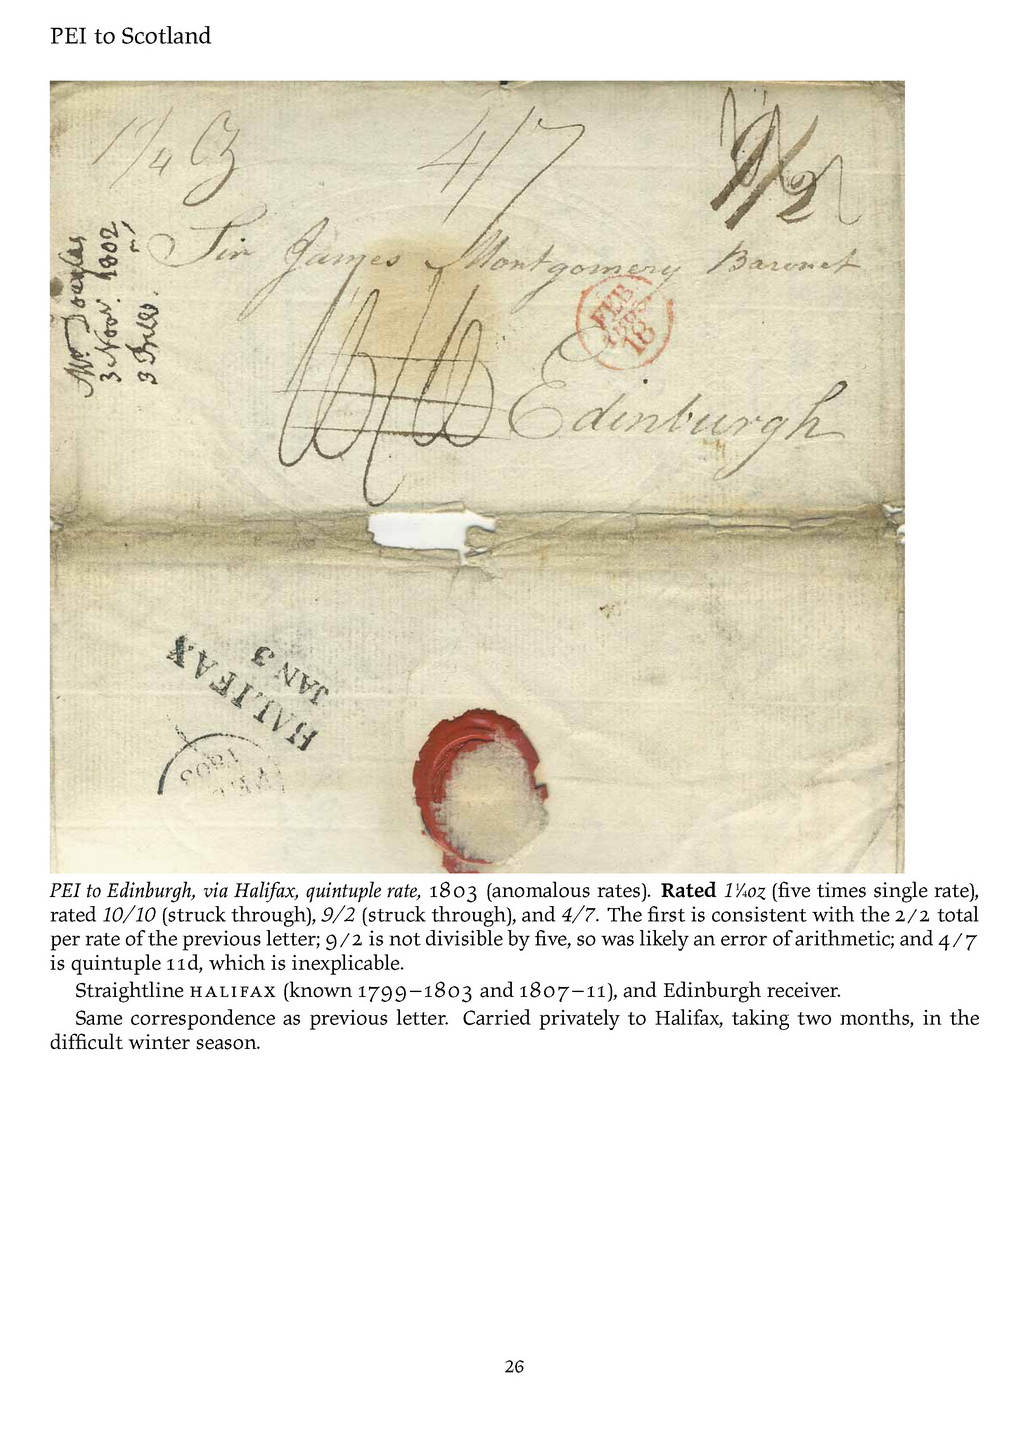 PEI to Scotland
1 1/4 Oz
4/7
9/2
Mr. Douglas
3 Novr. 1802
3 Bills.
Sir James Montgomery Baronet
FEB
1803
18
10/10
Edinburgh
HALIFAX
JAN 3
1803
PEI to Edinburgh, via Halifax, quintuple rate, 1803 (anomalous rates). Rated 1¼oz (five times single rate),
rated 10/10 (struck through), 9/2 (struck through), and 4/7. The first is consistent with the 2/2 total
per rate of the previous letter; 9/2 is not divisible by five, so was likely an error of arithmetic; and 4/7
is quintuple 11d, which is inexplicable.
Straightline HALIFAX (known 1799–1803 and 1807–11), and Edinburgh receiver.
Same correspondence as previous letter. Carried privately to Halifax, taking two months, in the
difficult winter season.
26